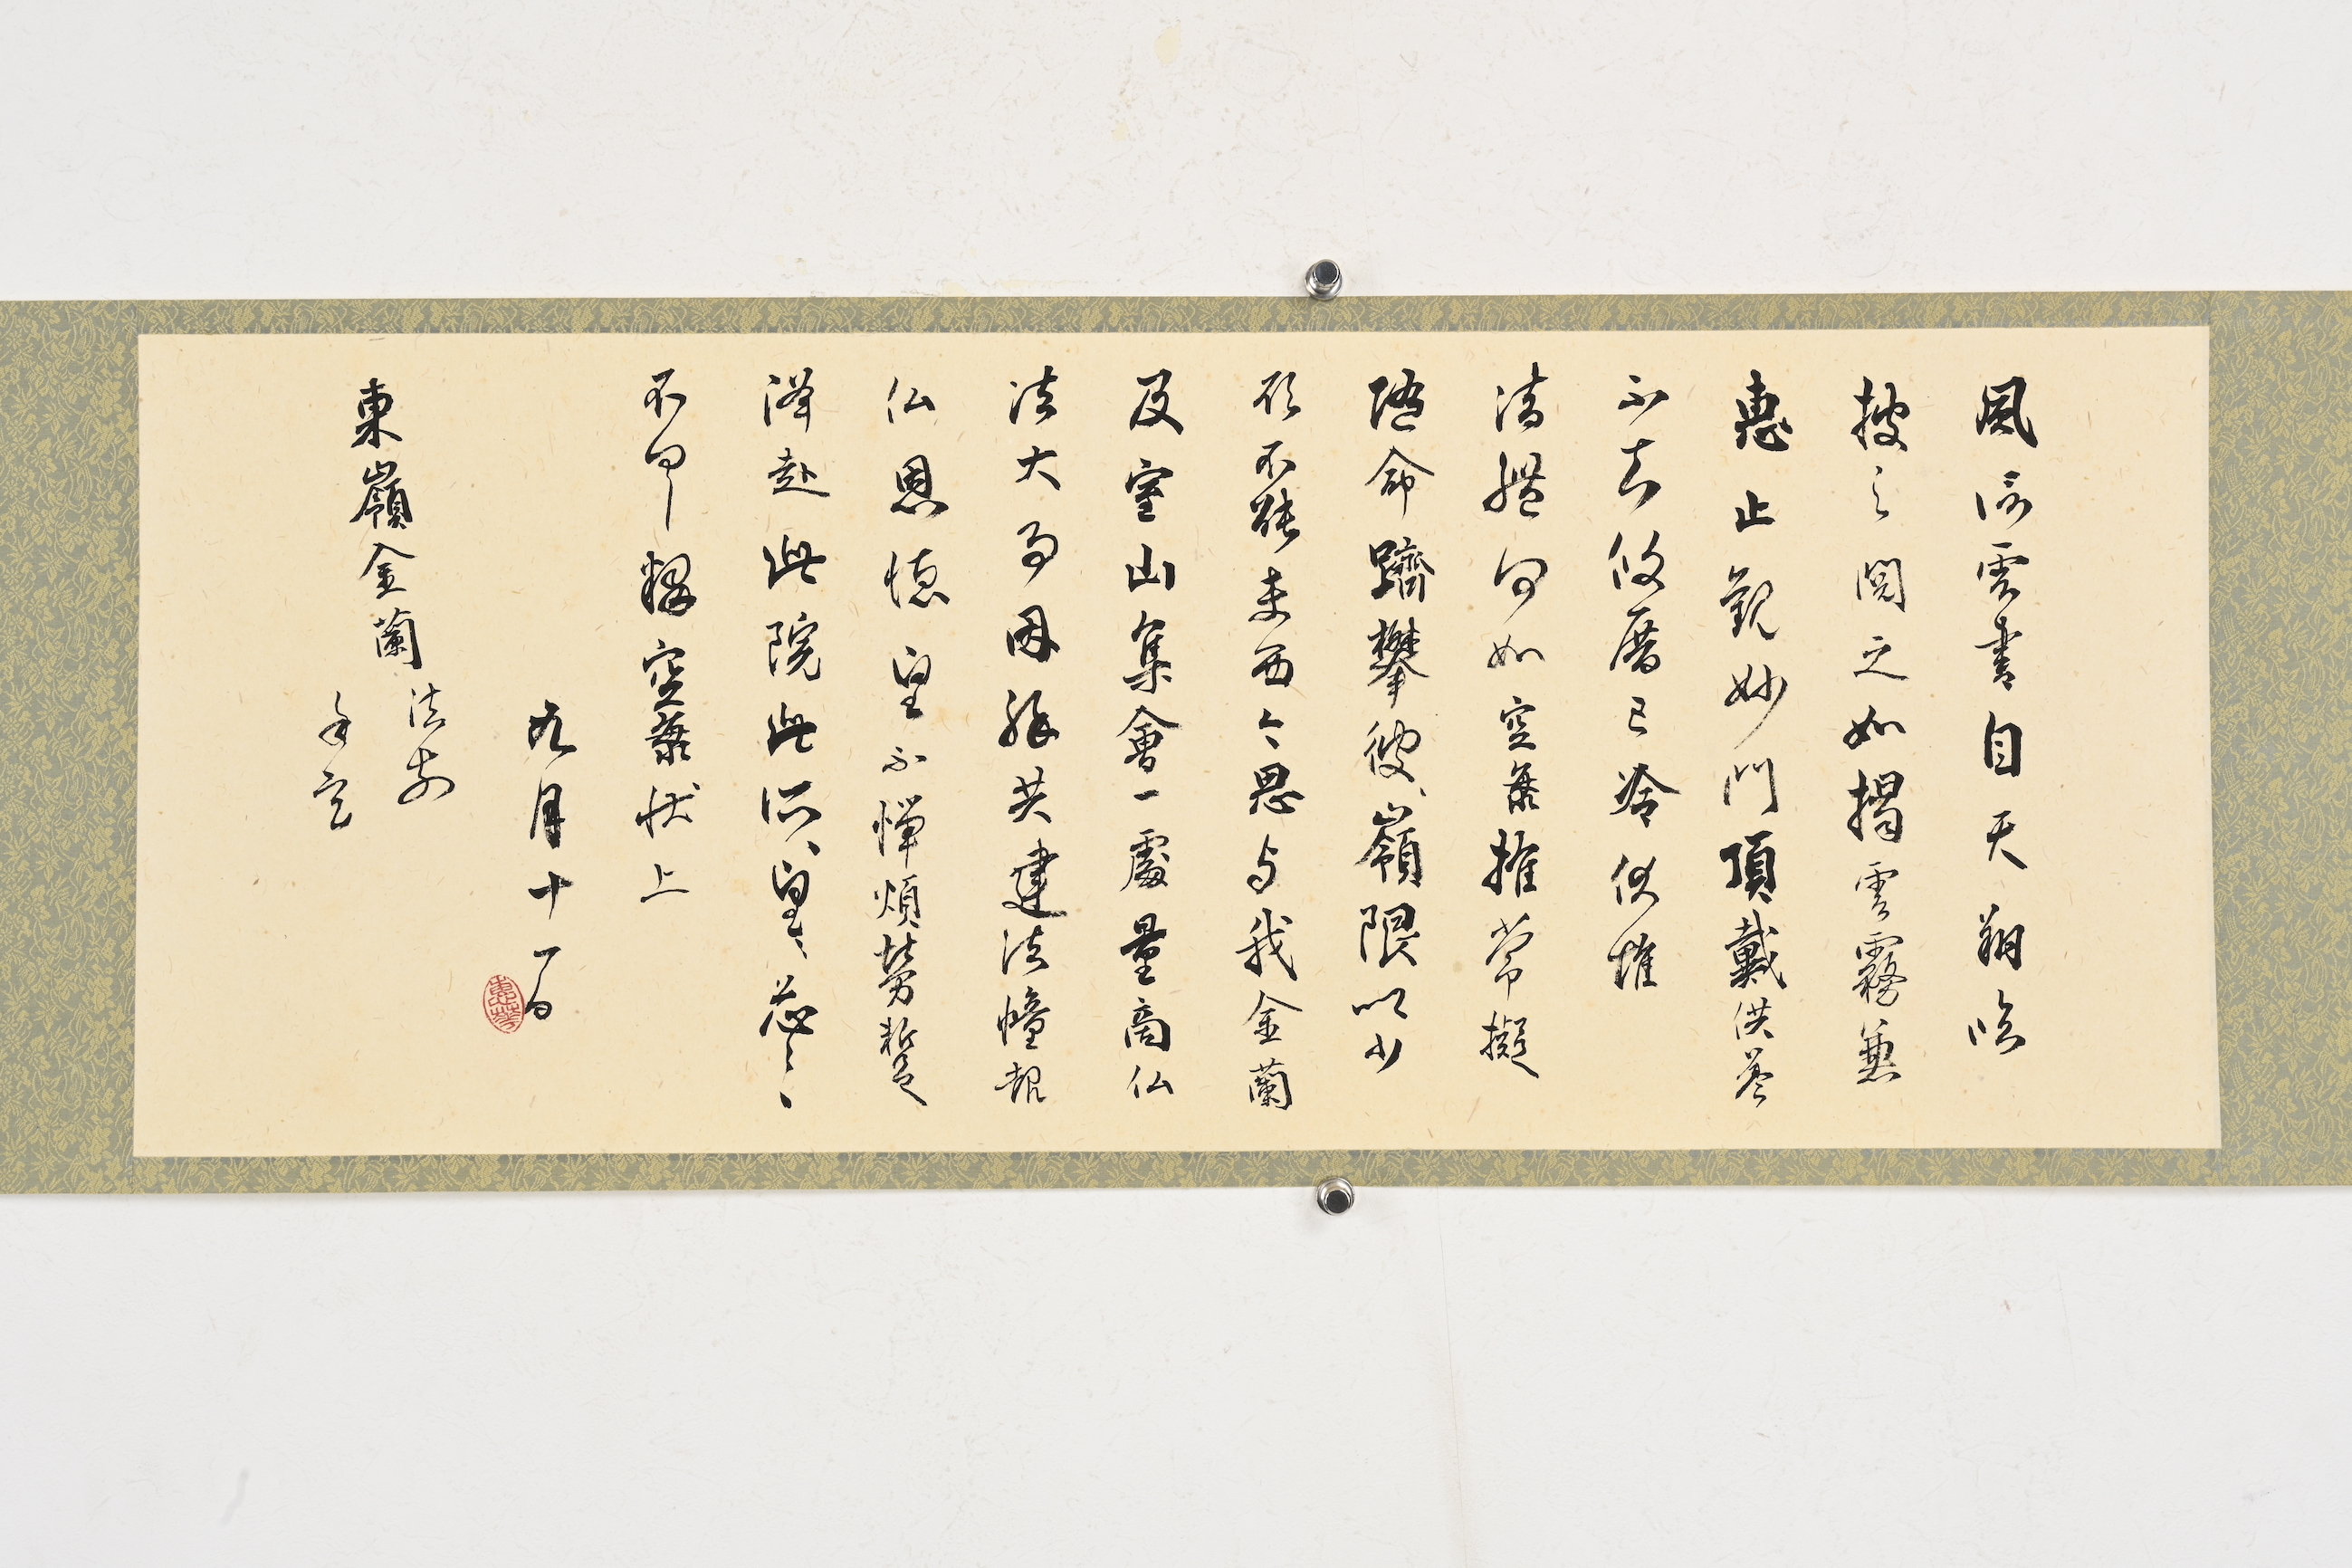 風信雲書自天翔臨
披之閲之如掲雲霧兼
恵止観妙門頂戴供養
不知攸厝已冷伏惟
法體何如空海推常擬
随命躋攀彼嶺限以少
願不能東西今思与我金蘭
及室山集會一處量商仏
法大事因縁共建法幢報
仏恩徳望不憚煩勞蹔
降赴此院此所望々忩々
不具釋空海状上
九月十一日
東嶺金蘭
法前
謹空